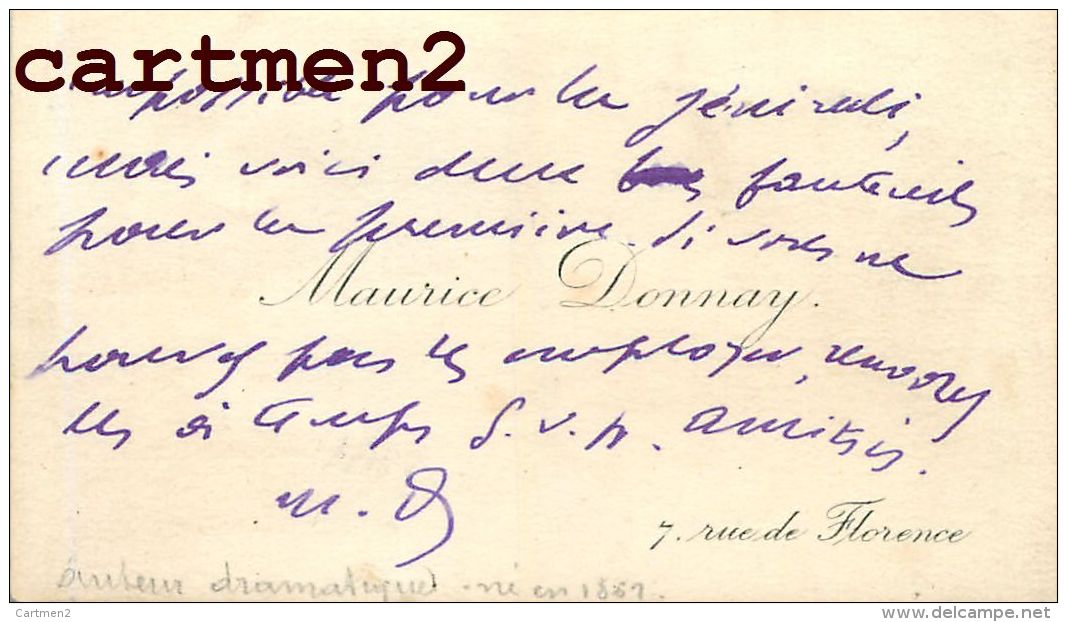 cartmen2
impossible pour la générale,
mais voici deux fauteuils
pour la première. Si vous ne
Maurice Donnay.
pouvez pas les employer, renvoyez
les à temps S.v.p. Amitiés.
M. D
7. rue de Florence
Auteur dramatique - né en
Cartmen2
delcampe.net